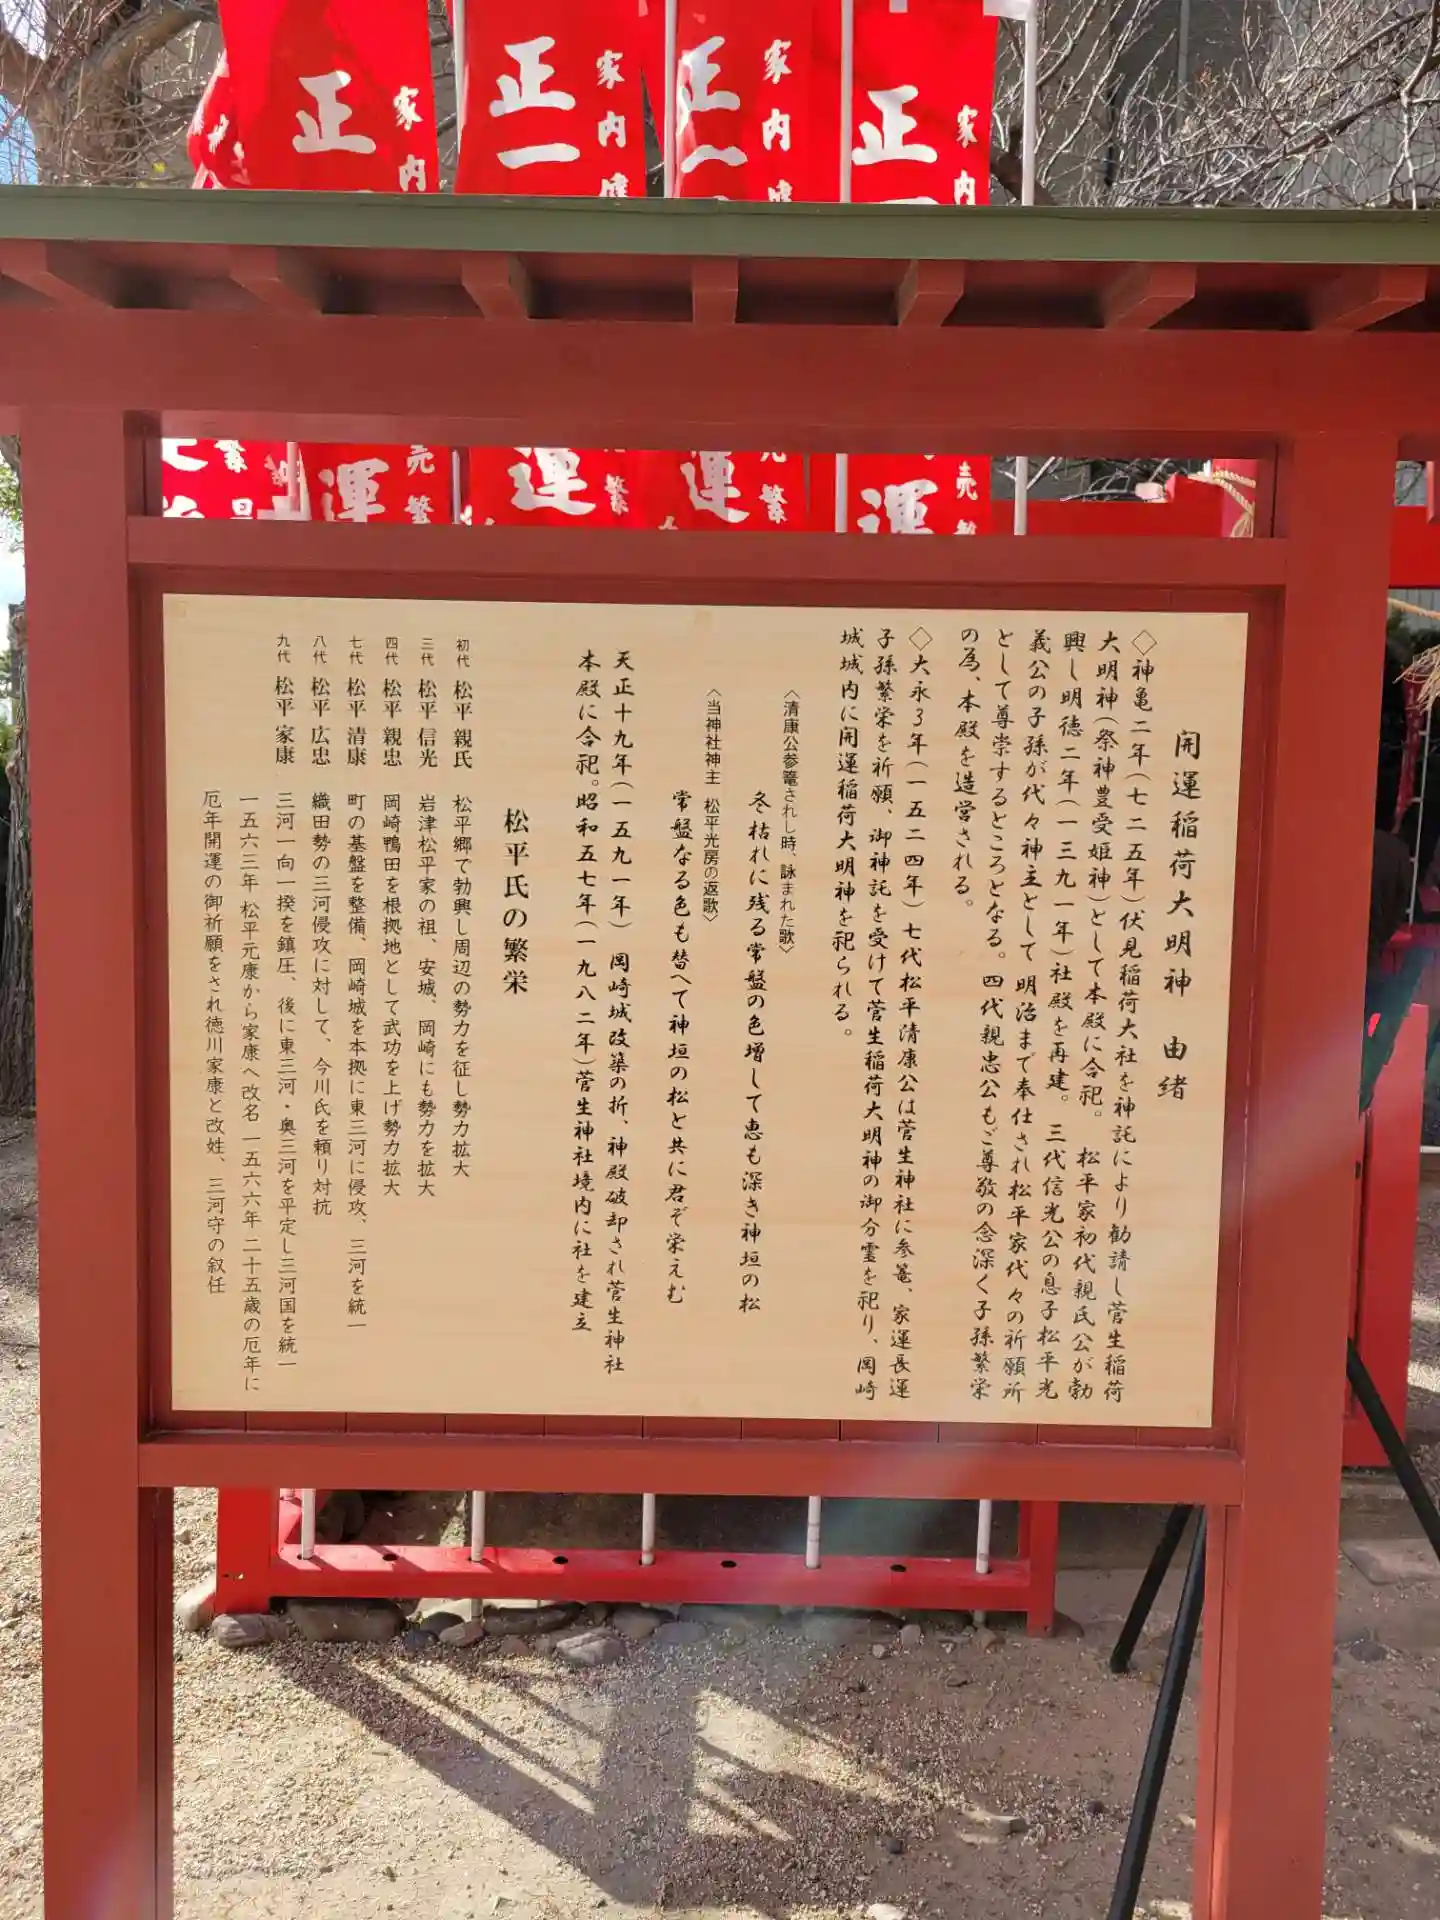 正一
家内
正一
家内健
正一
家内健
正一
家内
運
売繁
運
売繁
運
売繁
運
売繁
開運稲荷大明神 由緒
◇神亀二年(七二五年)伏見稲荷大社を神託により勧請し菅生稲荷
大明神(祭神豊受姫神)として本殿に合祀。 松平家初代親氏公が勃
興し明徳二年(一三九一年)社殿を再建。 三代信光公の息子松平光
義公の子孫が代々神主として 明治まで奉仕され松平家代々の祈願所
として尊崇するところとなる。四代親忠公もご尊敬の念深く子孫繁栄
の為、本殿を造営される。
◇大永3年(一五二四年)七代松平清康公は菅生神社に参篭、家運長運
子孫繁栄を祈願、御神託を受けて菅生稲荷大明神の御分霊を祀り、岡崎
城城内に開運稲荷大明神を祀られる。
〈清康公参篭されし時、詠まれた歌〉
冬枯れに残る常盤の色増して恵も深き神垣の松
〈当神社神主 松平光房の返歌〉
常盤なる色も替へて神垣の松と共に君ぞ栄えむ
天正十九年(一五九一年) 岡崎城改築の折、神殿破却され菅生神社
本殿に合祀。昭和五七年(一九八二年)菅生神社境内に社を建立
松平氏の繁栄
初代 松平 親氏 松平郷で勃興し周辺の勢力を征し勢力拡大
三代 松平 信光 岩津松平家の祖、安城、岡崎にも勢力を拡大
四代 松平 親忠 岡崎鴨田を根拠地として武功を上げ勢力拡大
七代 松平 清康 町の基盤を整備、岡崎城を本拠に東三河に侵攻、三河を統一
八代 松平 広忠 織田勢の三河侵攻に対して、今川氏を頼り対抗
九代 松平 家康 三河一向一揆を鎮圧、後に東三河・奥三河を平定し三河国を統一
一五六三年 松平元康から家康へ改名 一五六六年 二十五歳の厄年に
厄年開運の御祈願をされ徳川家康と改姓、三河守の叙任